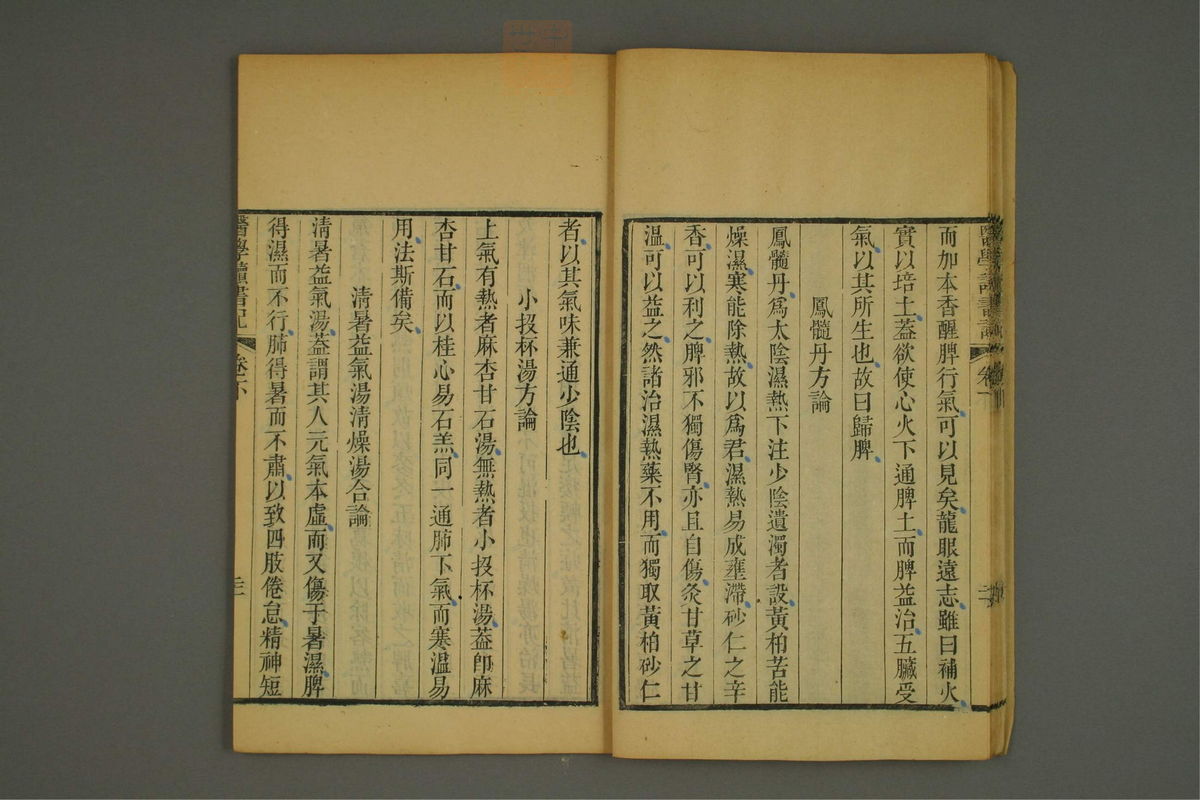 而加本香醒脾行氣可以見矣龍眼遠志雖曰補火
實以培土蓋欲使心火下通脾土而脾益治五臟受
氣以其所生也故曰歸脾
鳳髓丹方論
鳳髓丹爲太陰濕熱下注少陰遺濁者設黃柏苦能
燥濕寒能除熱故以爲君濕熱易成壅滯砂仁之辛
香可以利之脾邪不獨傷腎亦且自傷灸甘草之甘
溫可以益之然諸治濕熱藥不用而獨取黃柏砂仁
者以其氣味兼通少陰也
小投杯湯方論
上氣有熱者麻杏甘石湯無熱者小投杯湯葢卽麻
杏甘石而以桂心易石羔同一通肺下氣而寒溫易
用法斯備矣
清暑益氣湯清燥湯合論
清暑益氣湯葢謂其人元氣本虛而又傷于暑濕脾
得濕而不行肺得暑而不肅以致四肢倦怠精神短
醫學讀書記 卷下